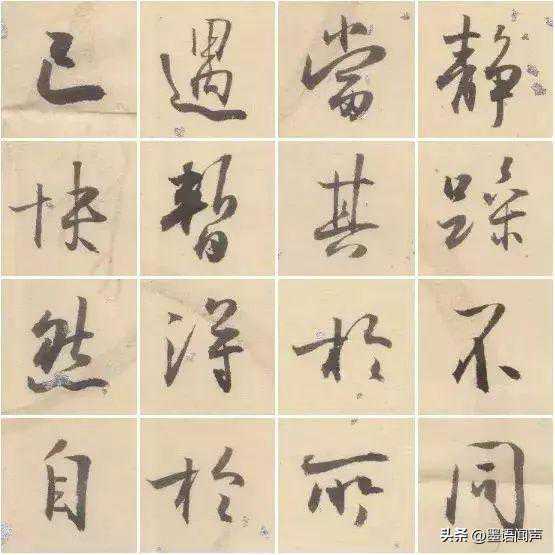 静躁不同
當其於所
遇暫得於
己快然自
头条 @墨语闻声